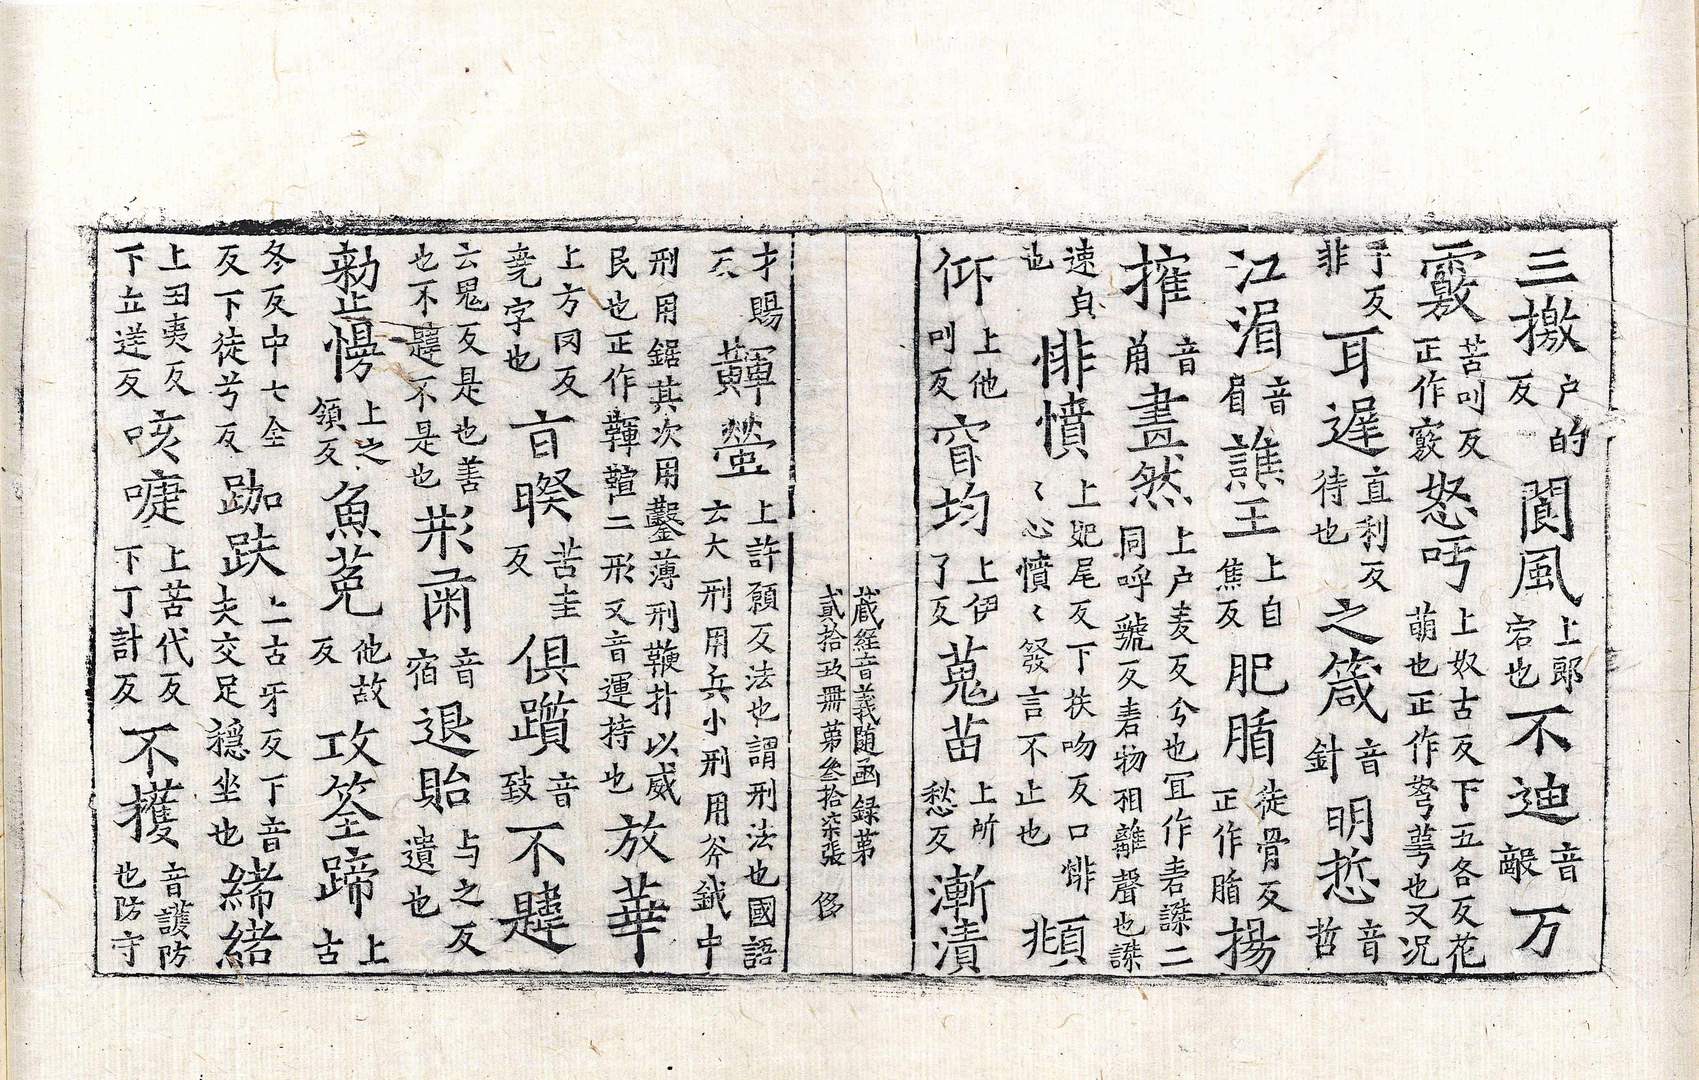 三撽户的反閬風上郎宕也不迪音敵万
覈苦叫反正作竅怒㖾上奴古反下五各反花萌也正作弩萼也又况
于反非耳遟直利反待也之箴音針明悊音哲
江湄音眉譙王上自焦反肥腯徒骨反正作腯揚
擁音甬畫然上户麦反兮也冝作砉謋二同呼虢反砉物相離聲也謋
速貞也悱憤上妃尾反下扶吻反口悱〻心憤〻發言不止也頫
仰上他叫反窅均上伊了反蒐苗上所愁反漸漬
藏経音義随函録第
貳拾玖冊第叄拾柒張 侈
才賜反韗䓨上許願反法也謂刑法也國語云大刑用兵小刑用斧鉞中
刑用鋸其次用鑿薄刑鞭扑以威民也正作韗䩵二形又音運持也放華
上方罔反荛字也盲睽苦圭反俱躓音致不韙
云鬼反是也善也不韙不是也㓝䘏音宿退貽与之反遺也
勑憜上之領反魚菟他故反攻筌蹄上古
冬反中七全反下徒兮反跏趺上古牙反下音夫交足穩坐也緒緒
上田夷反下立送反咳嚏上苦代反下丁計反不擭音護防也防守